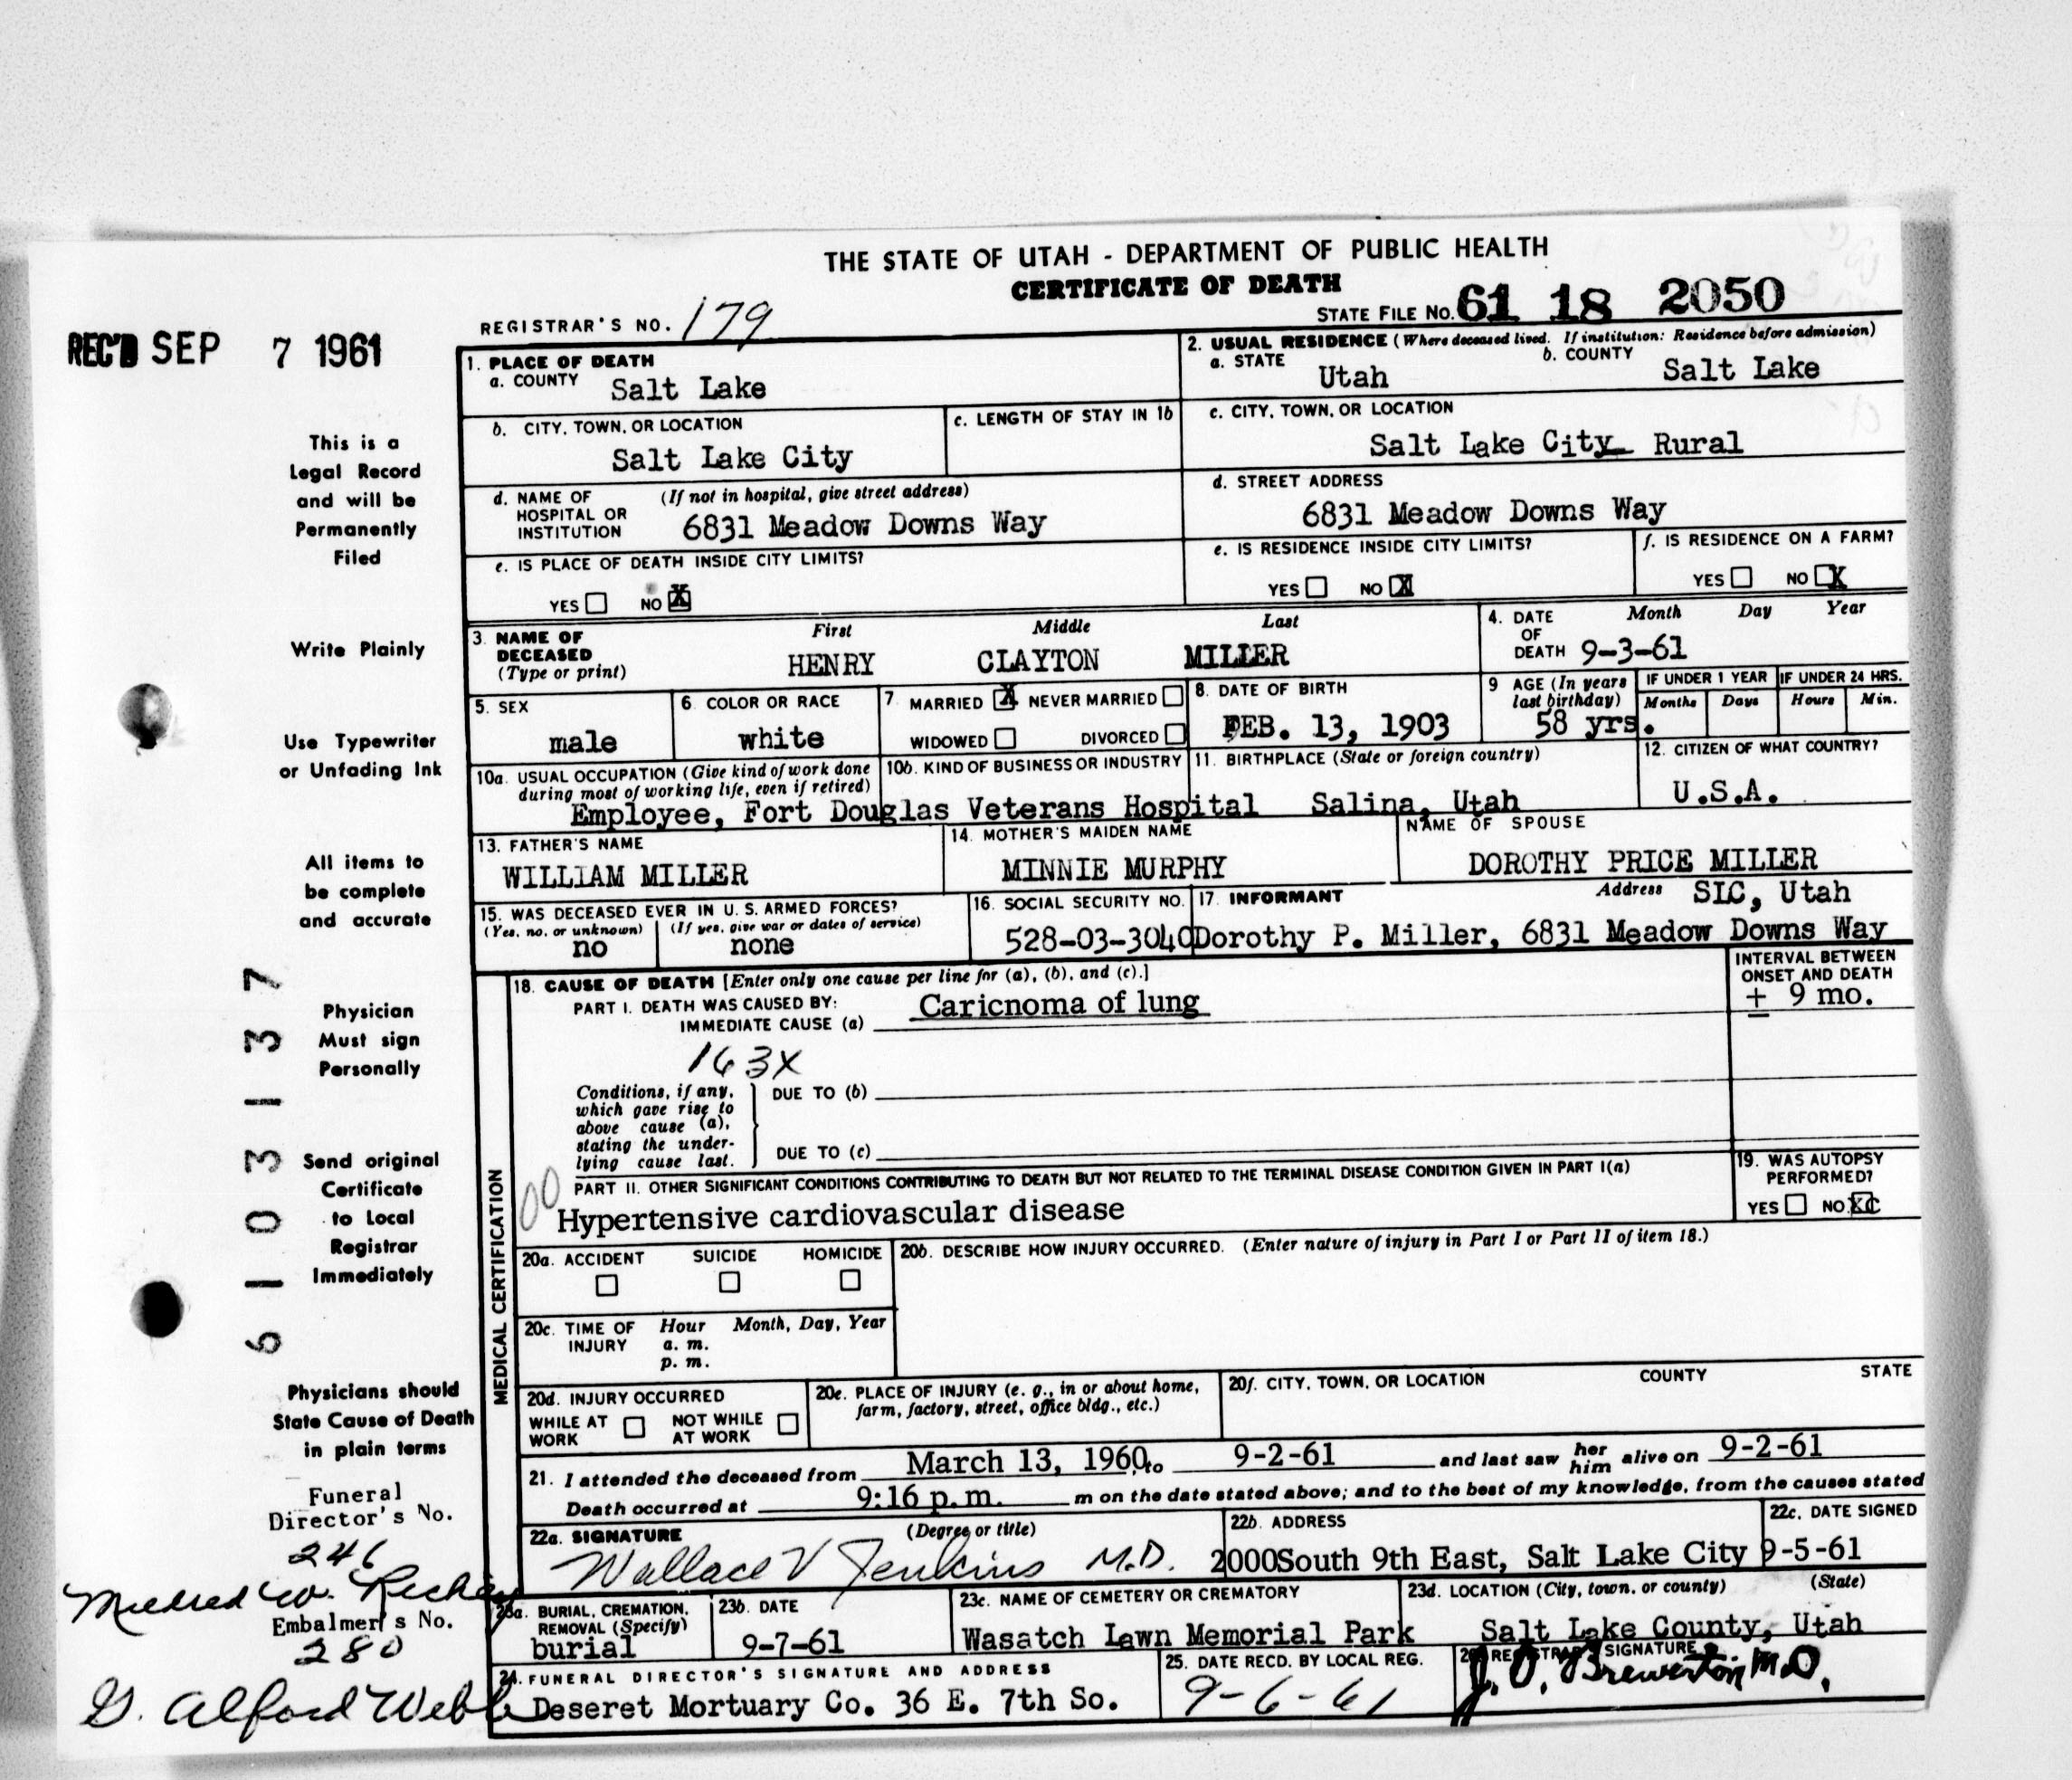 THE STATE OF UTAH - DEPARTMENT OF PUBLIC HEALTH
CERTIFICATE OF DEATH
REGISTRAR'S NO. 179
STATE FILE NO. 61 18 2050
REC'D SEP 7 1961
This is a
Legal Record
and will be
Permanently
Filed
Write Plainly
Use Typewriter
or Unfading Ink
All items to
be complete
and accurate
Physician
Must sign
Personally
Send original
Certificate
to Local
Registrar
Immediately
Physicians should
State Cause of Death
in plain terms
6103137
Funeral
Director's No.
246
Mildred W.
Embalmer's No.
280
G. Alford Webb
1. PLACE OF DEATH
a. COUNTY Salt Lake
2. USUAL RESIDENCE (Where deceased lived. If institution: Residence before admission)
a. STATE Utah b. COUNTY Salt Lake
b. CITY, TOWN, OR LOCATION
Salt Lake City
c. LENGTH OF STAY IN 1b
c. CITY, TOWN, OR LOCATION
Salt Lake City Rural
d. NAME OF HOSPITAL OR INSTITUTION (If not in hospital, give street address)
6831 Meadow Downs Way
d. STREET ADDRESS
6831 Meadow Downs Way
e. IS PLACE OF DEATH INSIDE CITY LIMITS?
YES NO X
e. IS RESIDENCE INSIDE CITY LIMITS?
YES NO X
f. IS RESIDENCE ON A FARM?
YES NO X
3. NAME OF DECEASED (Type or print)
First Middle Last
HENRY CLAYTON MILLER
4. DATE OF DEATH Month Day Year
9-3-61
5. SEX
male
6. COLOR OR RACE
white
7. MARRIED X NEVER MARRIED
WIDOWED DIVORCED
8. DATE OF BIRTH
FEB. 13, 1903
9 AGE (In years last birthday)
58 yrs.
IF UNDER 1 YEAR
Months Days
IF UNDER 24 HRS.
Hours Min.
10a. USUAL OCCUPATION (Give kind of work done during most of working life, even if retired)
10b. KIND OF BUSINESS OR INDUSTRY
Employee, Fort Douglas Veterans Hospital
11. BIRTHPLACE (State or foreign country)
Salina, Utah
12. CITIZEN OF WHAT COUNTRY?
U.S.A.
13. FATHER'S NAME
WILLIAM MILLER
14. MOTHER'S MAIDEN NAME
MINNIE MURPHY
NAME OF SPOUSE
DOROTHY PRICE MILLER
15. WAS DECEASED EVER IN U. S. ARMED FORCES?
(Yes, no, or unknown) (If yes, give war or dates of service)
no none
16. SOCIAL SECURITY NO.
528-03-3040
17. INFORMANT Address SLC, Utah
Dorothy P. Miller, 6831 Meadow Downs Way
MEDICAL CERTIFICATION
18. CAUSE OF DEATH [Enter only one cause per line for (a), (b), and (c).]
INTERVAL BETWEEN ONSET AND DEATH
PART I. DEATH WAS CAUSED BY:
IMMEDIATE CAUSE (a) Caricnoma of lung
± 9 mo.
163X
Conditions, if any, which gave rise to above cause (a), stating the underlying cause last.
DUE TO (b)
DUE TO (c)
PART II. OTHER SIGNIFICANT CONDITIONS CONTRIBUTING TO DEATH BUT NOT RELATED TO THE TERMINAL DISEASE CONDITION GIVEN IN PART I(a)
00
Hypertensive cardiovascular disease
19. WAS AUTOPSY PERFORMED?
YES NO X
20a. ACCIDENT SUICIDE HOMICIDE
20b. DESCRIBE HOW INJURY OCCURRED. (Enter nature of injury in Part I or Part II of item 18.)
20c. TIME OF INJURY Hour Month, Day, Year
a. m.
p. m.
20d. INJURY OCCURRED
WHILE AT WORK NOT WHILE AT WORK
20e. PLACE OF INJURY (e. g., in or about home, farm, factory, street, office bldg., etc.)
20f. CITY, TOWN, OR LOCATION COUNTY STATE
21. I attended the deceased from March 13, 1960, to 9-2-61 and last saw her him alive on 9-2-61
Death occurred at 9:16 p.m. m on the date stated above; and to the best of my knowledge, from the causes stated
22a. SIGNATURE (Degree or title)
Wallace V Jenkins M.D.
22b. ADDRESS
2000 South 9th East, Salt Lake City
22c. DATE SIGNED
9-5-61
23a. BURIAL, CREMATION, REMOVAL (Specify)
burial
23b. DATE
9-7-61
23c. NAME OF CEMETERY OR CREMATORY
Wasatch Lawn Memorial Park
23d. LOCATION (City, town, or county) (State)
Salt Lake County, Utah
24. FUNERAL DIRECTOR'S SIGNATURE AND ADDRESS
Deseret Mortuary Co. 36 E. 7th So.
25. DATE RECD. BY LOCAL REG.
9-6-61
26. REGISTRAR'S SIGNATURE
J. O. Brewerton M.D.